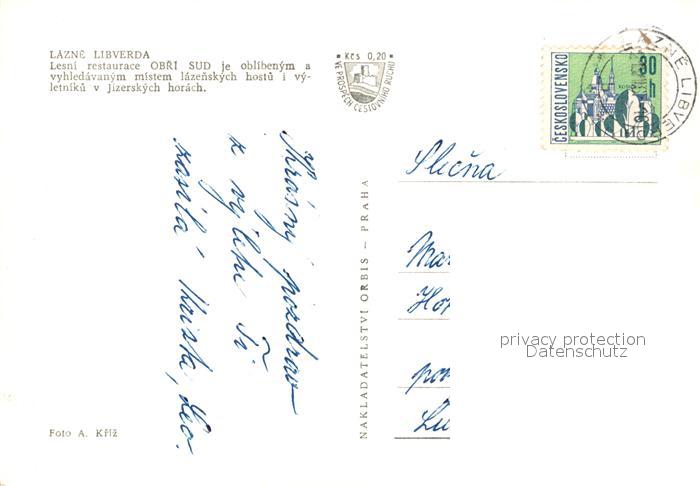 LÁZNĚ LIBVERDA
Lesní restaurace OBŘÍ SUD je oblíbeným a
vyhledávaným místem lázeňských hostů i vý-
letníků v Jizerských horách.
Kčs 0,20
VE PROSPĚCH CESTOVNÍHO RUCHU
ČESKOSLOVENSKO
30 h
LÁZNĚ LIBVERDA
Krásný pozdrav
z výletu Ti
zasílá
Leo.
NAKLADATELSTVÍ ORBIS – PRAHA
Slečna
Mar
Hor
pos
Lu
privacy protection
Datenschutz
Foto A. Kříž